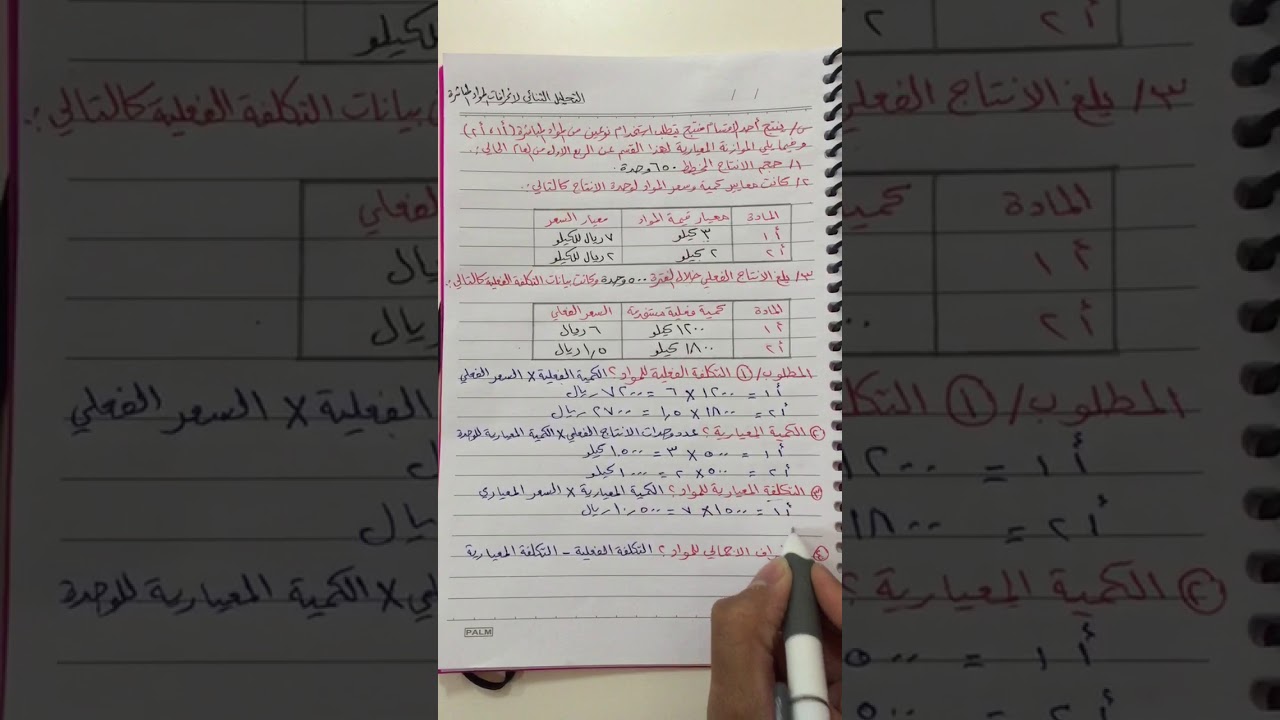 التحليل الثنائي لانحرافات المواد المباشرة
/ /
س/ ينتج أحد أقسام منتج يتطلب استخدام نوعين من المواد المباشرة (أ١، أ٢)
وفيما يلي الموازنة المعيارية لهذا القسم عن الربع الأول من العام الحالي:
١/ حجم الانتاج المخطط ٦٥٠ وحدة.
٢/ كانت معايير كمية وسعر المواد لوحدة الانتاج كالتالي:
المادة معيار قيمة المواد معيار السعر
أ١ ٣ كيلو ٧ ريال للكيلو
أ٢ ٢ كيلو ٢ ريال للكيلو
٣/ بلغ الانتاج الفعلي خلال الفترة ٥٠٠ وحدة وكانت بيانات التكلفة الفعلية كالتالي:
المادة كمية فعلية السعر الفعلي
أ١ ١٢٠٠ كيلو ٦ ريال
أ٢ ١٨٠٠ كيلو ١,٥ ريال
المطلوب/ ① التكلفة الفعلية للمواد؟ الكمية الفعلية × السعر الفعلي
أ١ = ١٢٠٠ × ٦ = ٧٢٠٠ ريال
أ٢ = ١٨٠٠ × ١,٥ = ٢٧٠٠ ريال
② الكمية المعيارية؟ عدد وحدات الانتاج الفعلي × الكمية المعيارية للوحدة
أ١ = ٥٠٠ × ٣ = ١٥٠٠ كيلو
أ٢ = ٥٠٠ × ٢ = ١٠٠٠ كيلو
③ التكلفة المعيارية للمواد؟ الكمية المعيارية × السعر المعياري
أ١ = ١٥٠٠ × ٧ = ١٠,٥٠٠ ريال
④ الاجمالي للمواد؟ التكلفة الفعلية - التكلفة المعيارية
PALM